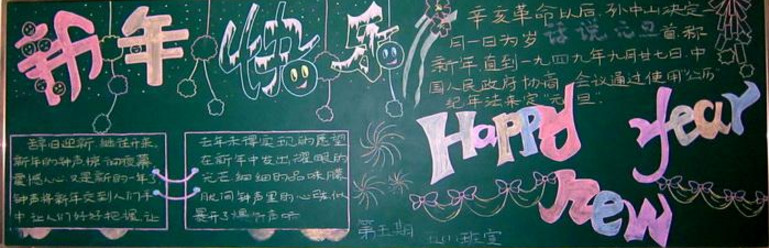 新年快乐
辞旧迎新，继往开来，
新年的钟声
震憾人心又是新的一年了
钟声将新年交到人们手
中让人们好好把握，让
去年未得实现的愿望
在新年中发出耀眼的
光芒细细的品味朦
胧间钟声里的心
辛亥革命以后，孙中山决定
月一日为岁 话说元旦 首，称
新年，直到一九四九年九月廿七日，中
国人民政府协商会议通过使用"公历
纪年法来定"元旦"
Happy year
new
第五期